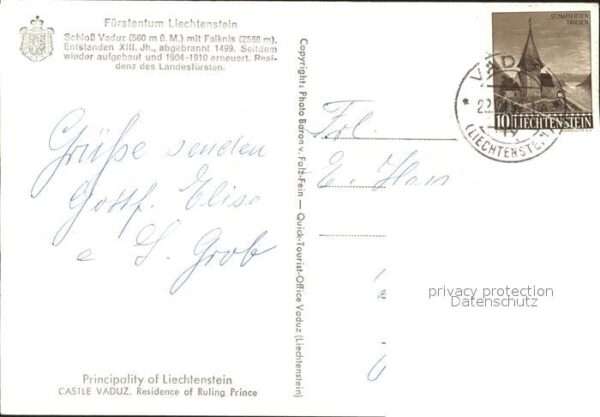 Fürstentum Liechtenstein
Schloß Vaduz (560 m ü. M.) mit Falknis (2566 m).
Entstanden XIII. Jh., abgebrannt 1499. Seitdem
wieder aufgebaut und 1904-1910 erneuert. Resi-
denz des Landesfürsten.
Grüße senden
Gottf. Elisa
e S. Grob
Principality of Liechtenstein
CASTLE VADUZ. Residence of Ruling Prince
Copyright: Photo Baron v. Falz-Fein — Quick-Tourist-Office Vaduz (Liechtenstein)
ST. MAMERTEN
TRIESEN
10 LIECHTENSTEIN
VAD
22.
(LIECHTENSTEIN)
Frl.
E. Ham
privacy protection
Datenschutz